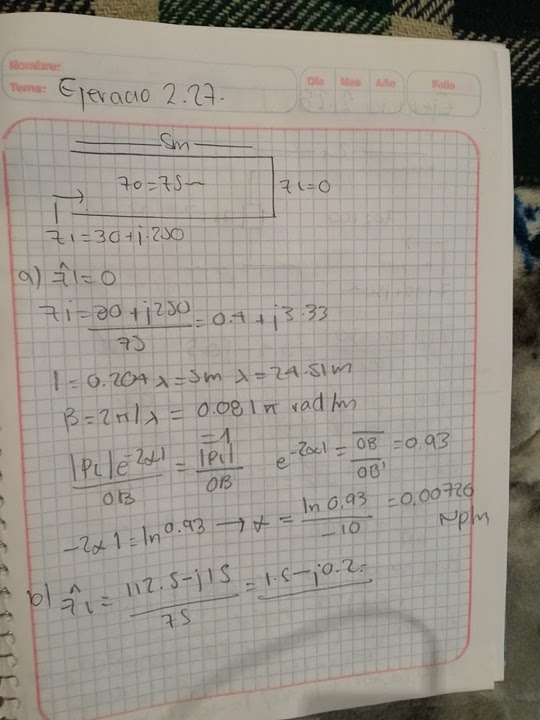 Nombre:
Tema: Ejercicio 2.27.
Día Mes Año Folio
5m
70=75
7L=0
7i=30+j.250
a) ẑl=0
7i=30+j250/75=0.4+j3.33
l=0.204λ=5m λ=24.51m
β=2π/λ=0.081π rad/m
|PL|e^-2αl/OB=|PL|=1/OB e^-2αl=OB/OB'=0.93
-2αl=ln0.93→α=ln0.93/-10=0.00726
Np/m
b) ẑL=112.5-j15/75=1.5-j0.2